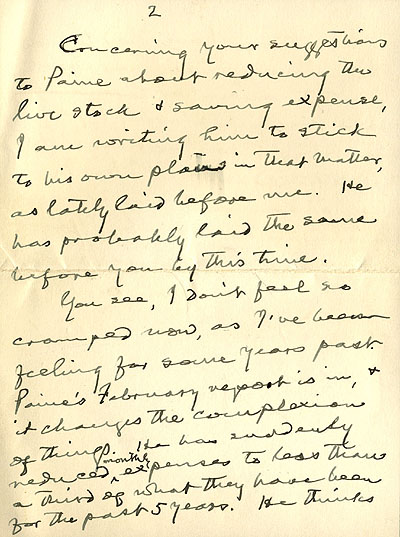 2
Concerning your suggestions
to Paine about reducing the
live stock & saving expense,
I am writing him to stick
to his own plans in that matter,
as lately laid before me. He
has probably laid the same
before you by this time.
You see, I don't feel so
cramped now, as I've been
feeling for some years past.
Paine's February report is in, &
it changes the complexion
of things. He has suddenly
monthly
reduced expenses to less than
a third of what they have been
for the past 5 years. He thinks